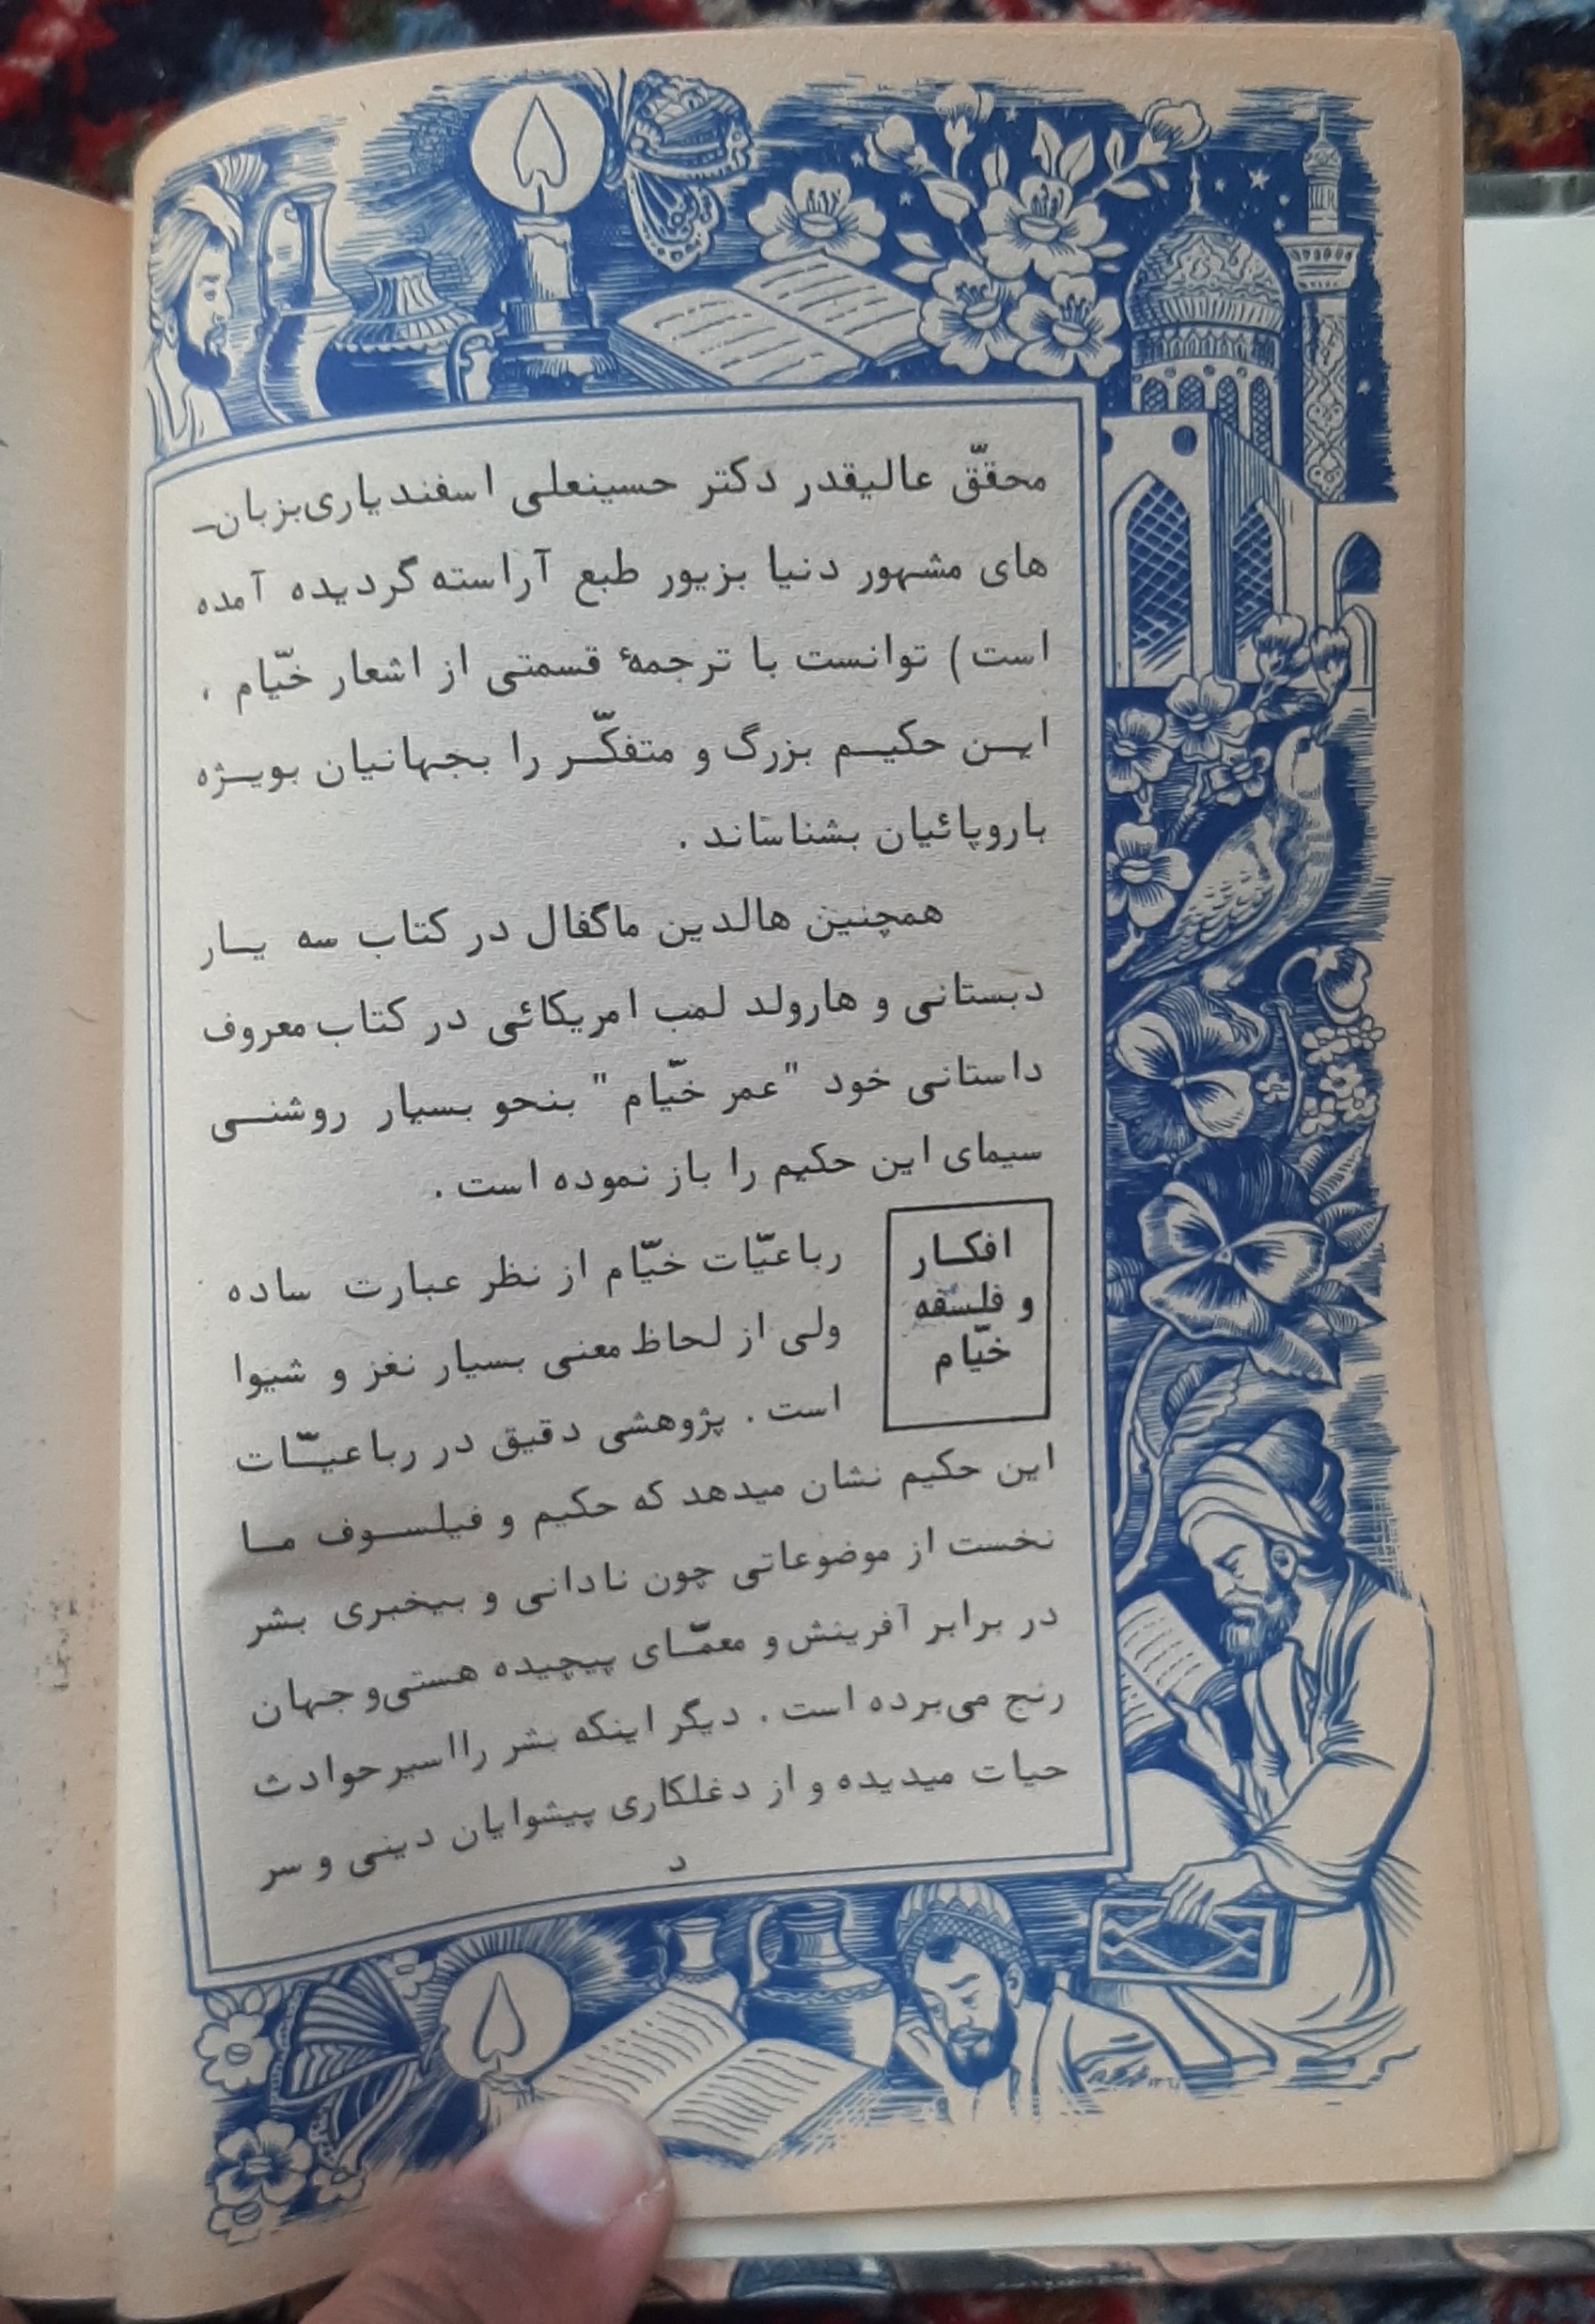 محقّق عالیقدر دکتر حسینعلی اسفندیاری بزبان‌ـ
های مشهور دنیا بزیور طبع آراسته گردیده آمده
است) توانست با ترجمهٔ قسمتی از اشعار خیّام ،
ایـن حکیـم بزرگ و متفکّـر را بجهانیان بویـژه
باروپائیان بشناساند .
همچنین هالدین ماگفال در کتاب سه یـار
دبستانی و هارولد لمب امریکائی در کتاب معروف
داستانی خود "عمر خیّام" بنحو بسیار روشنـی
سیمای این حکیم را باز نموده است .
افکـار
و فلسفه
خیّام
رباعیّات خیّام از نظر عبارت ساده
ولی از لحاظ معنی بسیار نغز و شیوا
است . پژوهشی دقیق در رباعیـّات
این حکیم نشان میدهد که حکیم و فیلسـوف مـا
نخست از موضوعاتی چون نادانی و بیخبری بشر
در برابر آفرینش و معمّـای پیچیده هستی و جهان
رنج می‌برده است . دیگر اینکه بشر را اسیر حوادث
حیات میدیده و از دغلکاری پیشوایان دینی و سر
د